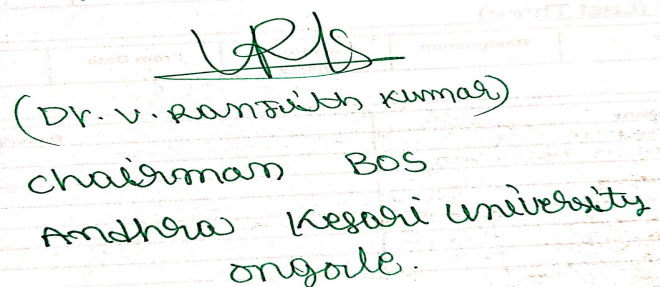 (Dr. V. Ranjith Kumar)
Chairman BOS
Andhra Kesari University
ongole.